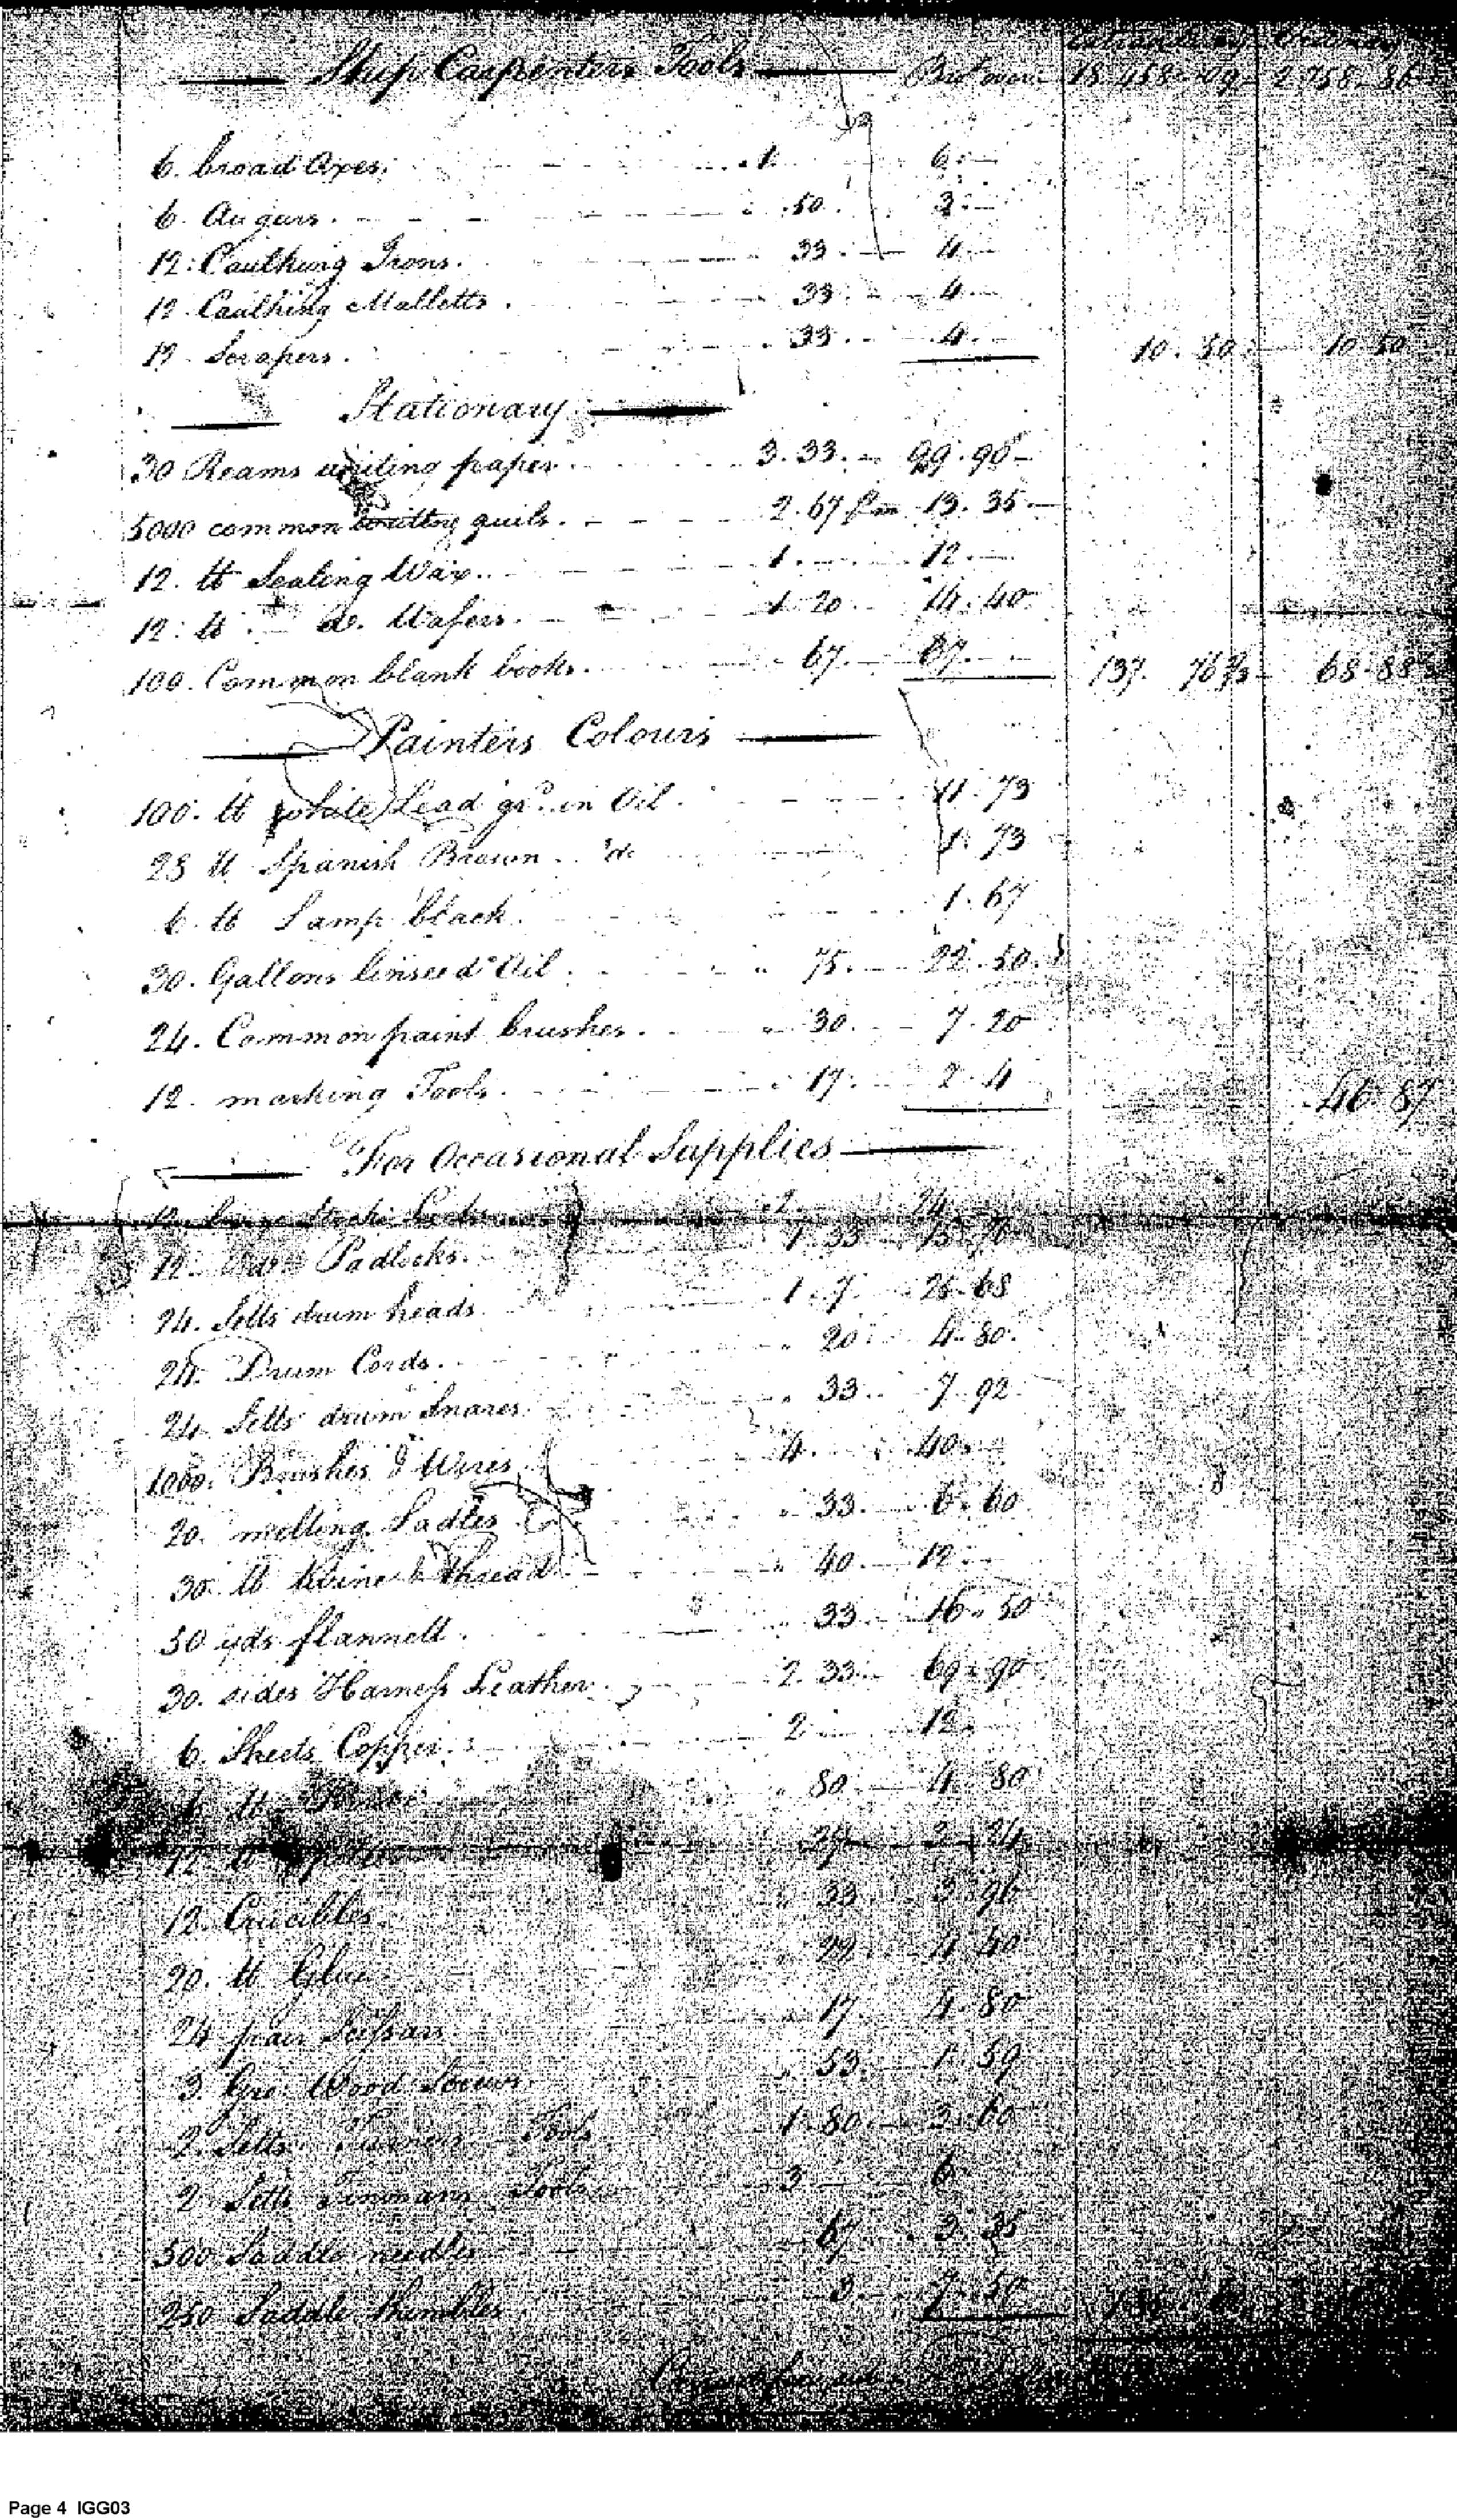 Extraordinary Ordinary
Ship Carpenters Tools Brot over 18.458-09 2.758-86
6. broad Axes. 1 6.
6. Augurs. .50 3.
12. Caulking Irons. .33 4
12. Caulking Malletts. .33 4
12. Scrapers. .33 4 10.50 10.50
Stationary
30 Reams writing paper 3.33. 99.90
5000 common writing quils. 2.67 pm 13.35
12. lb Sealing Wax 1. 12.
12. lb do. Wafers. 1.20 14.40
100. Common blank books. .67. 67. 137. 76 68.88
Painters Colours
100. lb white Lead grd. in Oil. 11.73
28 lb Spanish Brown. do 1.73
6. lb Lamp black. 1.67
30. Gallons linseed Oil. .75. 22.50
24. Common paint brushes. .30. 7.20
12. marking Tools. .17. 2.4 46.87
For Occasional Supplies
12. large Stock Locks 2. 24
12. Padlocks. 1.33
24. Setts drum heads 1.7. 25.68
24. Drum Cords. .20 4.80
24. Setts drum Snares .33 7.92
1000. Brushes & Wires 4. 40.
20. melting Ladles .33. 6.60
30. lb twine & thread .40. 12.
50 yds flannell. .33. 16.50
30. sides Harness Leather. 2.33 69.90
6. Sheets Copper. 2 12.
lb .80 4.80
12 lb
12. Crucibles .33 3.96
20. lb Glue .22 4.40
24 pair Scissars .17 4.80
3. Gro. Wood Screws. .53. 1.59
2. Setts Turners Tools 1.80. 3.60
2. Setts Tinmans Tools 3 6
500 Saddle needles .67 3.35
250 Saddle thimbles .3 7.50
Carried forward
Page 4 IGG03